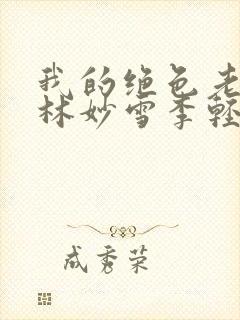 我的绝色老
林妙雪季轻
成秀荣